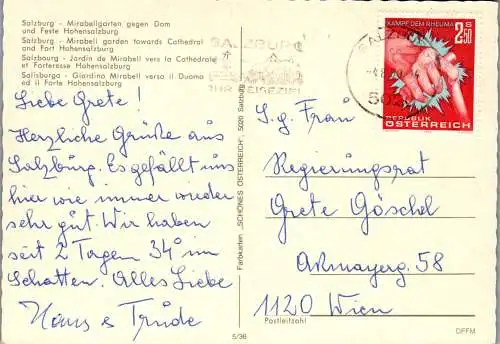 Salzburg - Mirabellgarten gegen Dom
und Feste Hohensalzburg
Salzburg - Mirabell garden towards Cathedral
and Fort Hohensalzburg
Salzbourg - Jardin de Mirabell vers la Cathedrale
et Forteresse Hohensalzburg
Salisburgo - Giardino Mirabell verso il Duomo
ed il Forte Hohensalzburg
SALZBURG
IHR REISEZIEL
SALZBURG
KAMPF DEM RHEUMA
S
2.50
REPUBLIK
ÖSTERREICH
Liebe Grete!
Herzliche Grüße aus
Salzburg. Es gefällt uns
hier wie immer wieder
sehr gut. Wir haben
seit 2 Tagen 34° im
Schatten. Alles Liebe
Hans & Trude
Farbkarten „SCHÖNES ÖSTERREICH", 5020 Salzburg
S.g. Frau
Regierungsrat
Grete Göschl
Aßmayerg. 58
1120 Wien
Postleitzahl
5/36
DFFM